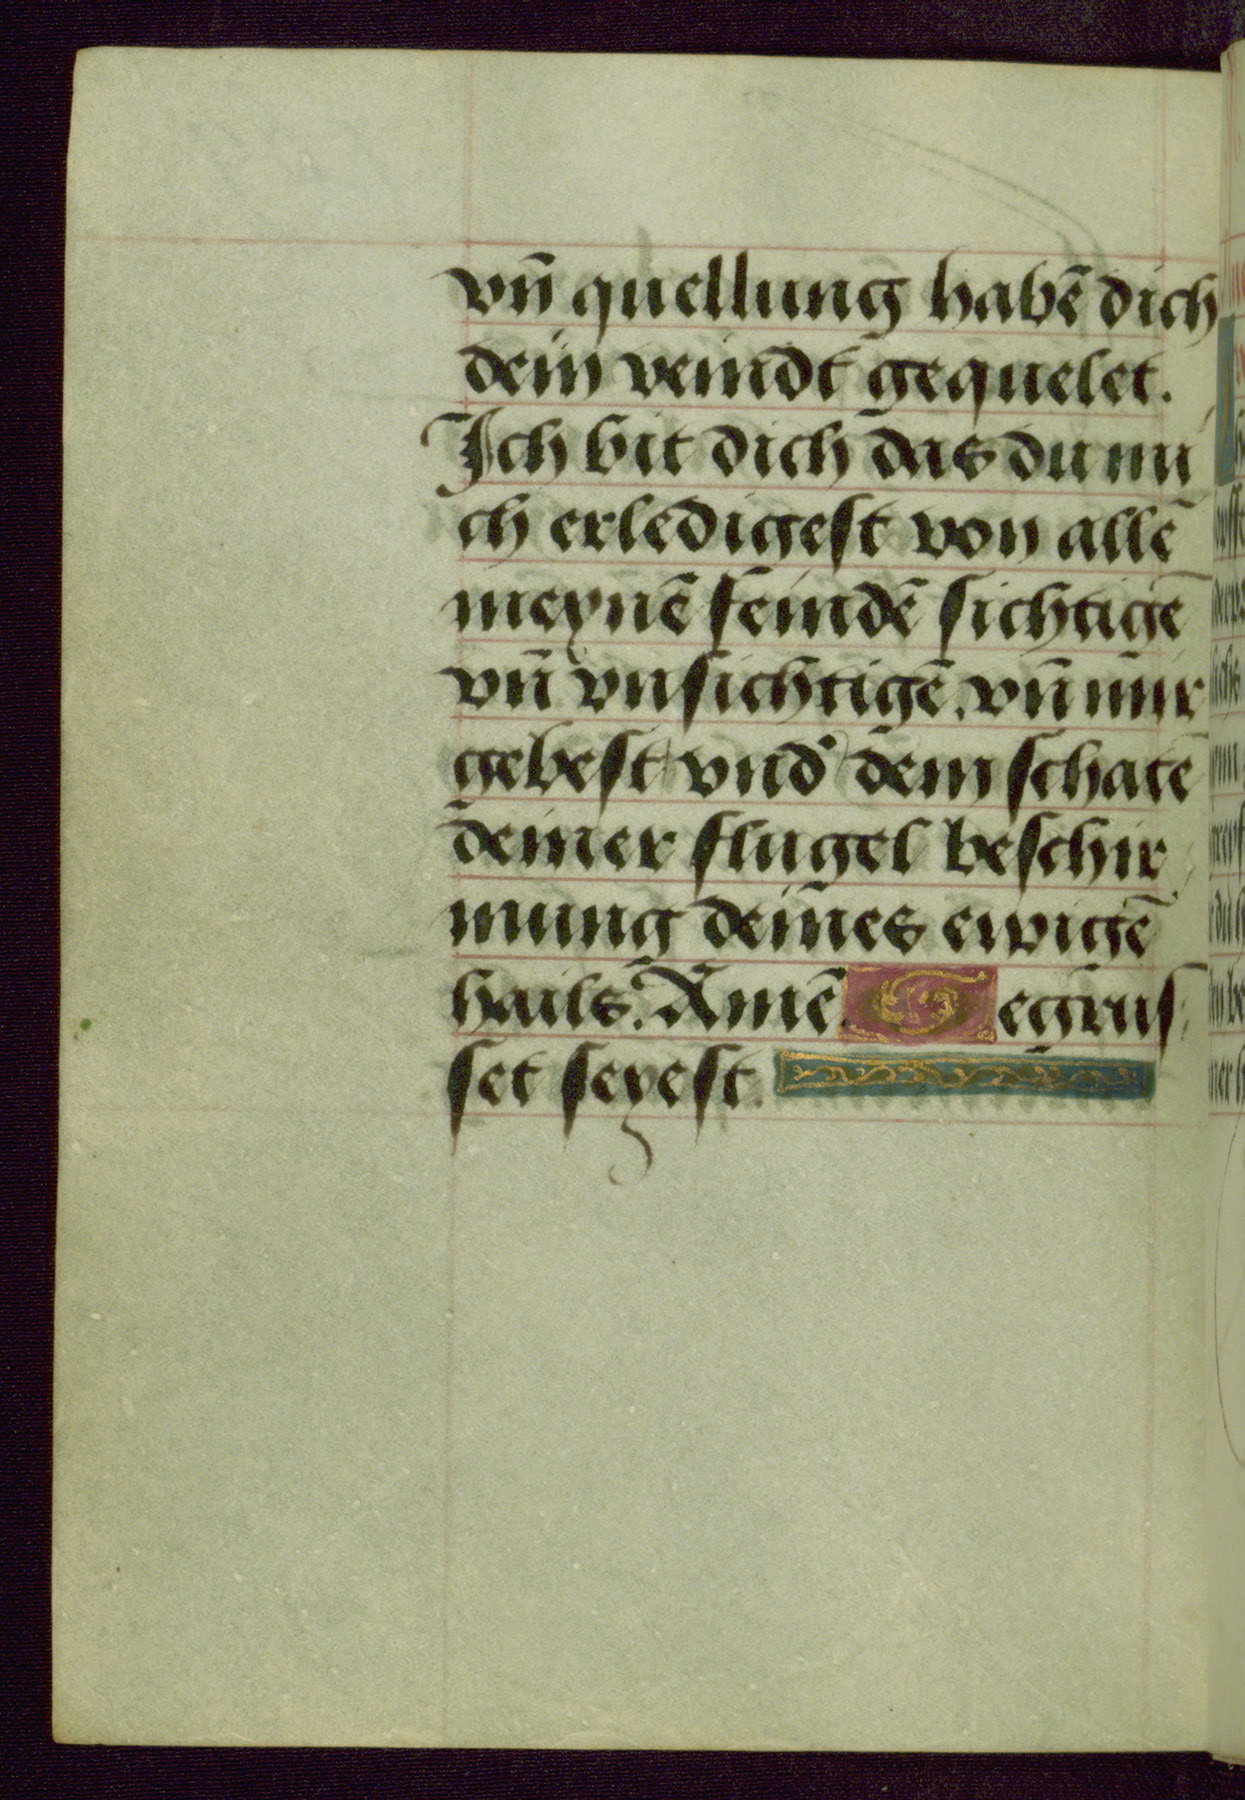 vn̄ quellung habē dich
dein veindt gequelet.
Ich bit dich das du mi
ch erledigest von allē
meynē feindē sichtigē
vn̄ vnsichtigē. vn̄ mir
gebest vnd᾽ dem schatē
deiner flugel beschir
mung deines ewigē
hails. Amē. Gegrus
set seyest.